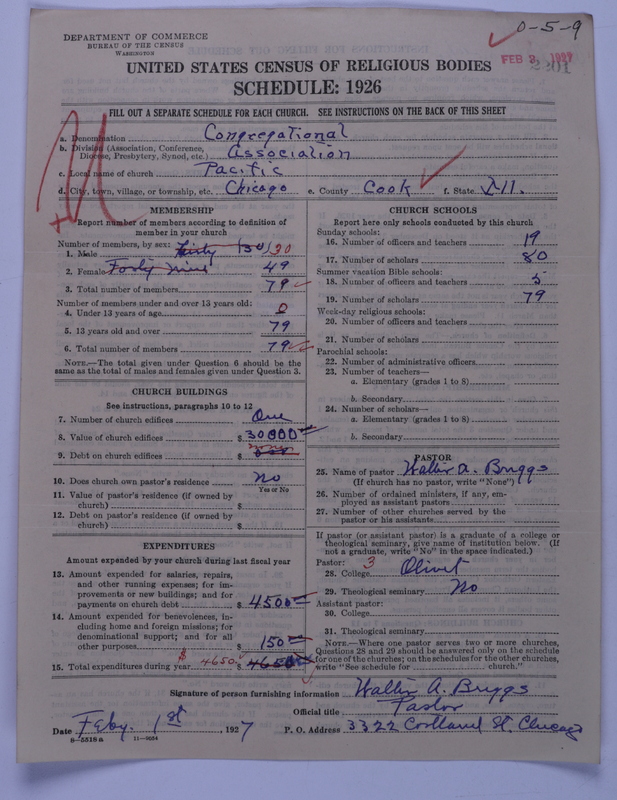 DEPARTMENT OF COMMERCE
BUREAU OF THE CENSUS
WASHINGTON
0-5-9
FEB 3 1927
UNITED STATES CENSUS OF RELIGIOUS BODIES
SCHEDULE: 1926
FILL OUT A SEPARATE SCHEDULE FOR EACH CHURCH. SEE INSTRUCTIONS ON THE BACK OF THIS SHEET
a. Denomination Congregational
b. Division (Association, Conference, Diocese, Presbytery, Synod, etc.) Association
c. Local name of church Pacific
d. City, town, village, or township, etc. Chicago e. County Cook f. State Ill.
MEMBERSHIP
Report number of members according to definition of
member in your church
Number of members, by sex:
1. Male Thirty (30) 30
2. Female Forty nine 49
3. Total number of members 79
Number of members under and over 13 years old:
4. Under 13 years of age 0
5. 13 years old and over 79
6. Total number of members 79
NOTE.—The total given under Question 6 should be the
same as the total of males and females given under Question 3.
CHURCH BUILDINGS
See instructions, paragraphs 10 to 12
7. Number of church edifices One
8. Value of church edifices $30000
9. Debt on church edifices $ none
10. Does church own pastor's residence No
Yes or No
11. Value of pastor's residence (if owned by
church) $
12. Debt on pastor's residence (if owned by
church) $
EXPENDITURES
Amount expended by your church during last fiscal year
13. Amount expended for salaries, repairs,
and other running expenses; for im-
provements or new buildings; and for
payments on church debt $4500
14. Amount expended for benevolences, in-
cluding home and foreign missions; for
denominational support; and for all
other purposes 150
15. Total expenditures during year $4650 $4650
CHURCH SCHOOLS
Report here only schools conducted by this church
Sunday schools:
16. Number of officers and teachers 19
17. Number of scholars 80
Summer vacation Bible schools:
18. Number of officers and teachers 5
19. Number of scholars 79
Week-day religious schools:
20. Number of officers and teachers
21. Number of scholars
Parochial schools:
22. Number of administrative officers
23. Number of teachers—
a. Elementary (grades 1 to 8)
b. Secondary
24. Number of scholars—
a. Elementary (grades 1 to 8)
b. Secondary
PASTOR
25. Name of pastor Walter A. Briggs
(If church has no pastor, write "None")
26. Number of ordained ministers, if any, em-
ployed as assistant pastors
27. Number of other churches served by the
pastor or his assistants
If pastor (or assistant pastor) is a graduate of a college or
theological seminary, give name of institution below. (If
not a graduate, write "No" in the space indicated.)
Pastor: 3
28. College Olivet
29. Theological seminary No
Assistant pastor:
30. College
31. Theological seminary
NOTE.—Where one pastor serves two or more churches,
Questions 28 and 29 should be answered only on the schedule
for one of the churches; on the schedules for the other churches,
write "See schedule for church."
Signature of person furnishing information Walter A. Briggs
Official title Pastor
Date Feby. 1st, 1927 P. O. Address 3322 Cortland St. Chicago
8-5518a 11-9084